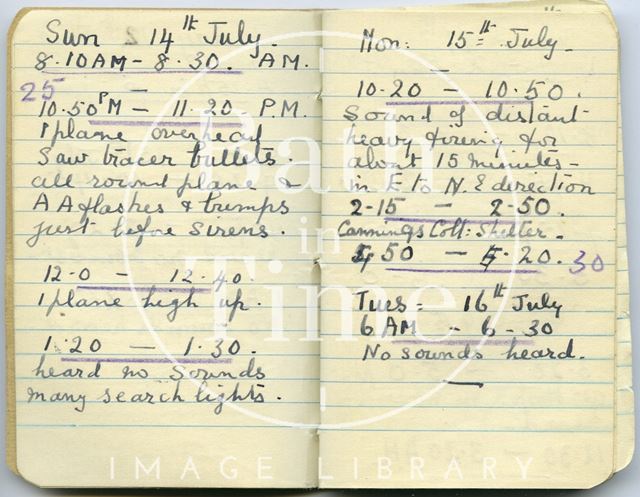 Sun 14th July.
8.10AM - 8.30. AM.
25
10.50PM - 11.20 P.M.
1 plane overhead
Saw tracer bullets.
all round plane &
AA flashes & bumps
just before Sirens.
12.0 - 12.40.
1 plane high up.
1.20 - 1.30.
heard no Sounds
many search lights.
Mon: 15th July.
10.20 - 10.50.
Sound of distant
heavy firing for
about 15 minutes -
in E to N.E direction
2.15 - 2.50.
Cannings Cott: Shelter.
4 50 - 5.20. 30
Tues = 16th July
6 AM - 6-30
No sounds heard.
Bath
in
Time
IMAGE LIBRARY